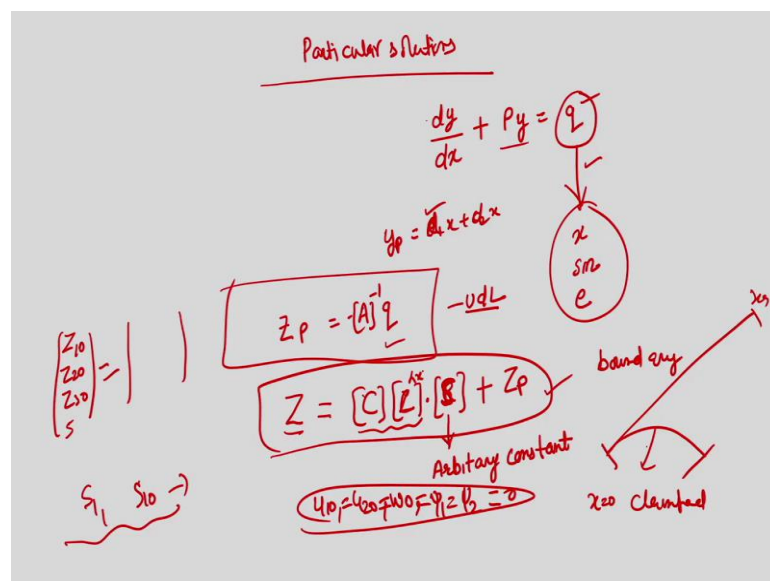 Particular solutions
dy/dx + Py = q
x
sin
e
y_p = d₁x + d₂x
Z_P = -[A]⁻¹ q
- UDL
Z₁₀
Z₂₀
Z₃₀
S
=
Z = [C][e^λx]·[S] + Z_P
boundary
Arbitary constant
S₁, S₁₀ →
u₁₀ = u₂₀ = w₀ = φ₁ = φ₂ = 0
x=0 clamped